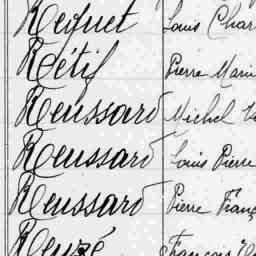 Requet Louis Char
Rétif Pierre Mari
Reussard Michel
Reussard Louis Pierre
Reussard Pierre Franç
Reuzé François